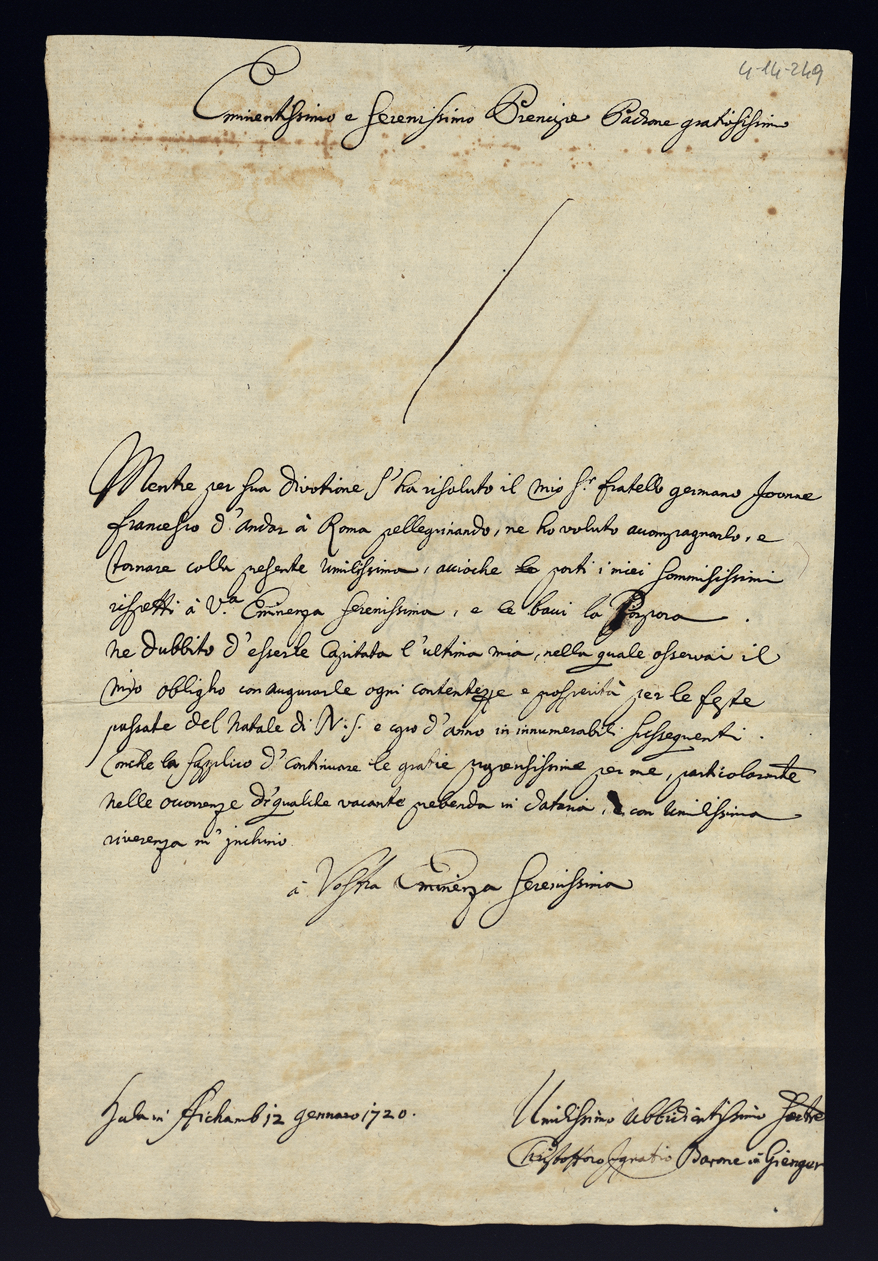 4-14-249
Eminentissimo e Serenissimo Prencipe Padrone gratiosissimo
Mentre per sua divotione s'ha risoluto il mio Sr. fratello germano
francesco d'andar à Roma pellegrinando, ne hò voluto accompagnarlo, e
colla presente umilissima, accioche porti i miei sommisissimi
rispetti à V.a Eminenza Serenissima, e le bacci la Porpora.
ne dubbito d'esserle Capitata l'ultima mia, nella quale osservai il
mio obligho con augurarle ogni contentezze e prosperità per le feste
passate del Natale di N.S. e capo d'anno in innumerabili susseguenti.
la supplico d'continuare le gratie propensissime per me, particolarmte
nelle occorrenze di qualche vacante prebenda in dataria, è con umilissima
riverenza m' jnchino
à Vostra Eminenza Serenissima
12 Gennaro 1720.
Umilissimo Ubbidientissimo
Christofforo Jgnatio Barone à Gienger